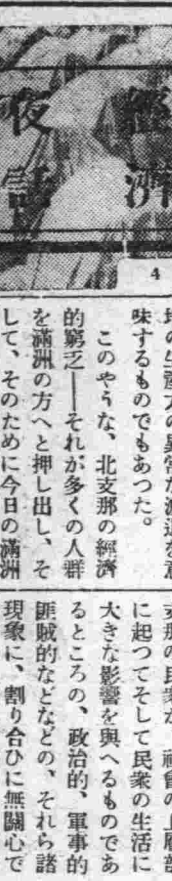 經濟
夜話
4
の生産力の異常な減退を意
味するものでもあつた。
このやうな、北支那の經濟
的窮乏——それが多くの人群
を滿洲の方へと押し出し、そ
して、そのために今日の滿洲
支那の民衆が、社會の上層部
に起つてそして民衆の生活に
大きな影響を與へるものであ
るところの、政治的、軍事的
匪賊的などなどの、それら諸
現象に、割り合ひに無關心で